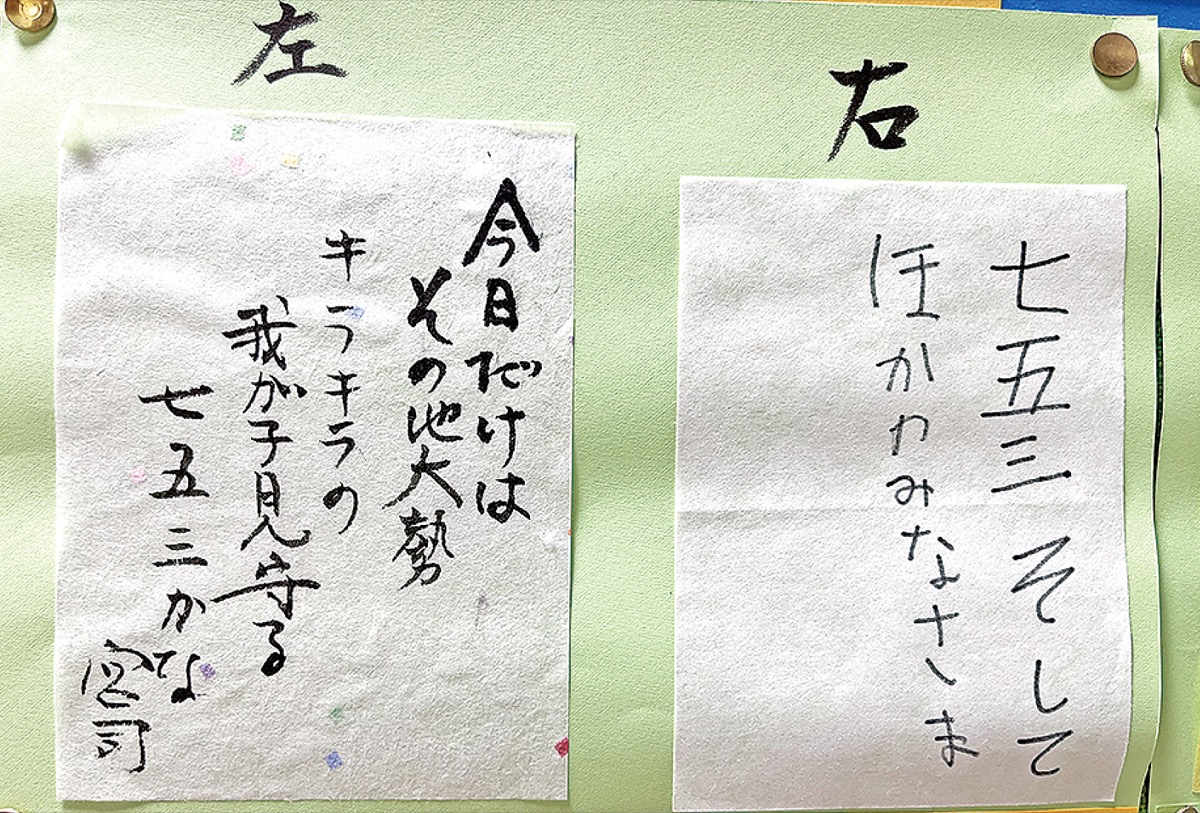 右
七五三 そして
ほかわみなさま
左
今日だけは
その他大勢
キラキラの
我が子見守る
七五三かな